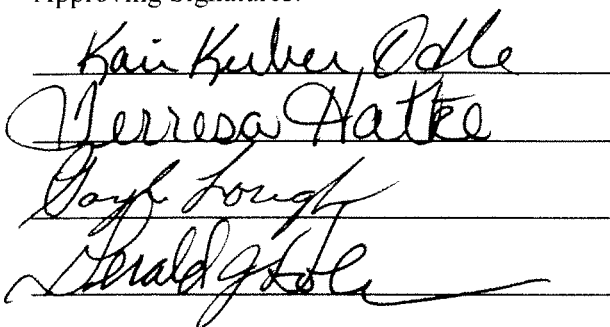 Approving Signatures:
Kari Kerber Odle
Terresa Hatke
Lough
Gerald J